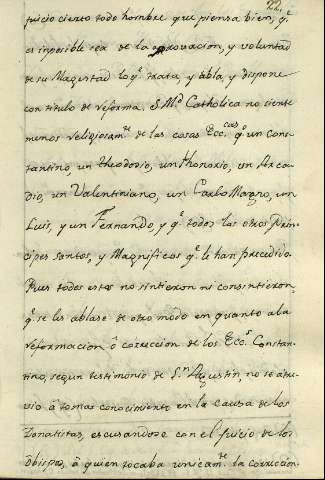 22.
juicio cierto todo hombre que piensa bien, q.e
es imposible sea de la aprovacion, y voluntad
de su Magestad lo q.e trata, y abla, y dispone
con titulo de reforma. S. M.d Catholica no siente
menos religiosam.te de las cosas Ecc.cas q.e un Cons-
tantino, un theodosio, un thonorio, un Arca-
dio, un Valentiniano, un Carlo Magno, un
Luis, y un Fernando, y q.e todos los otros Prin-
cipes santos, y Magnificos q.e le han precedido.
Pues todos estos no sintieron ni consintieron
q.e se les ablase de otro modo en quanto a la
reformacion ô correccion de los Ecc.s Constan-
tino, segun testimonio de S.n Agustin, no se atre-
vio â tomar conocimiento en la causa de los
Donatistas, escusandose con el juicio de los
Obispos, â quien tocaba unicam.te la correccion